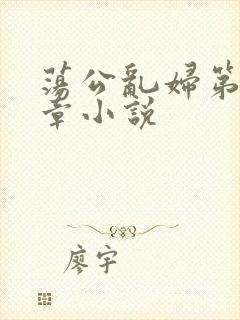 蕩公亂婦第
章小説
廖宇